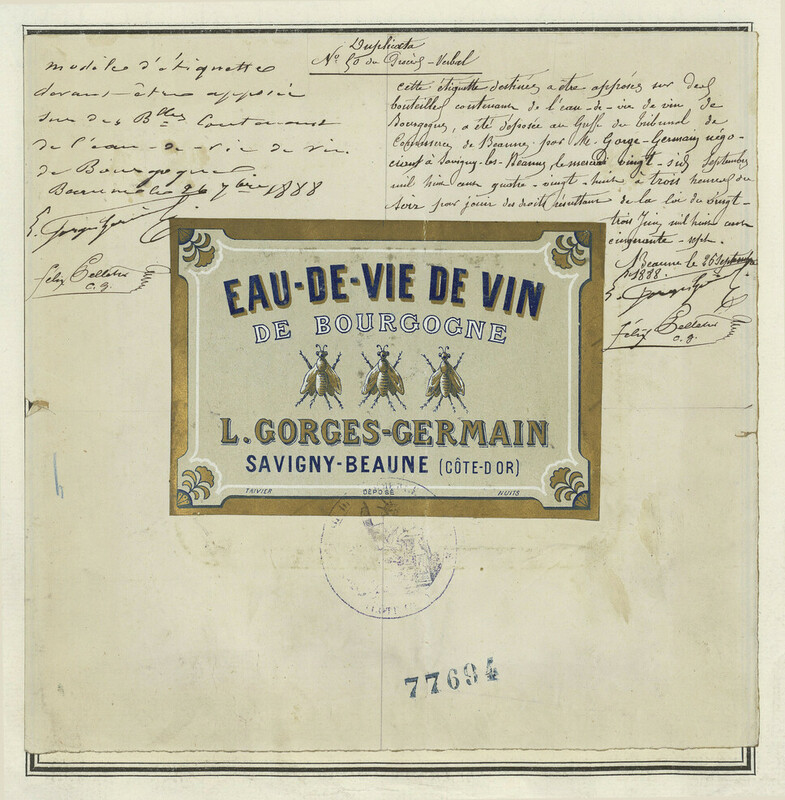 Duplicata
N° 50 du Procès-Verbal
modèle d'étiquette
devant-être apposée
sur des Blles Contenant
de l'eau-de-vie de vin
de Bourgogne
Beaune le 26 7bre 1888
Félix Pelletier
C. g.
cette étiquette destinée a être apposée sur des
bouteilles contenant de l'eau-de-vie de vin de
Bourgogne, a été déposée au Greffe du tribunal de
Commerce de Beaune, par M. Gorge-Germain négo-
ciant à Savigny-les-Beaune le mercredi vingt-six Septembre
mil huit cent quatre-vingt-huit à trois heures du
soir pour jouir des droits résultant de la loi du vingt-
trois Juin mil huit cent
cinquante-sept.
Beaune le 26 Septembre
1888.
Félix Pelletier
C. g.
EAU-DE-VIE DE VIN
DE BOURGOGNE
L. GORGES-GERMAIN
SAVIGNY-BEAUNE (CÔTE-D'OR)
TAIVIER DÉPOSÉ NUITS
77694